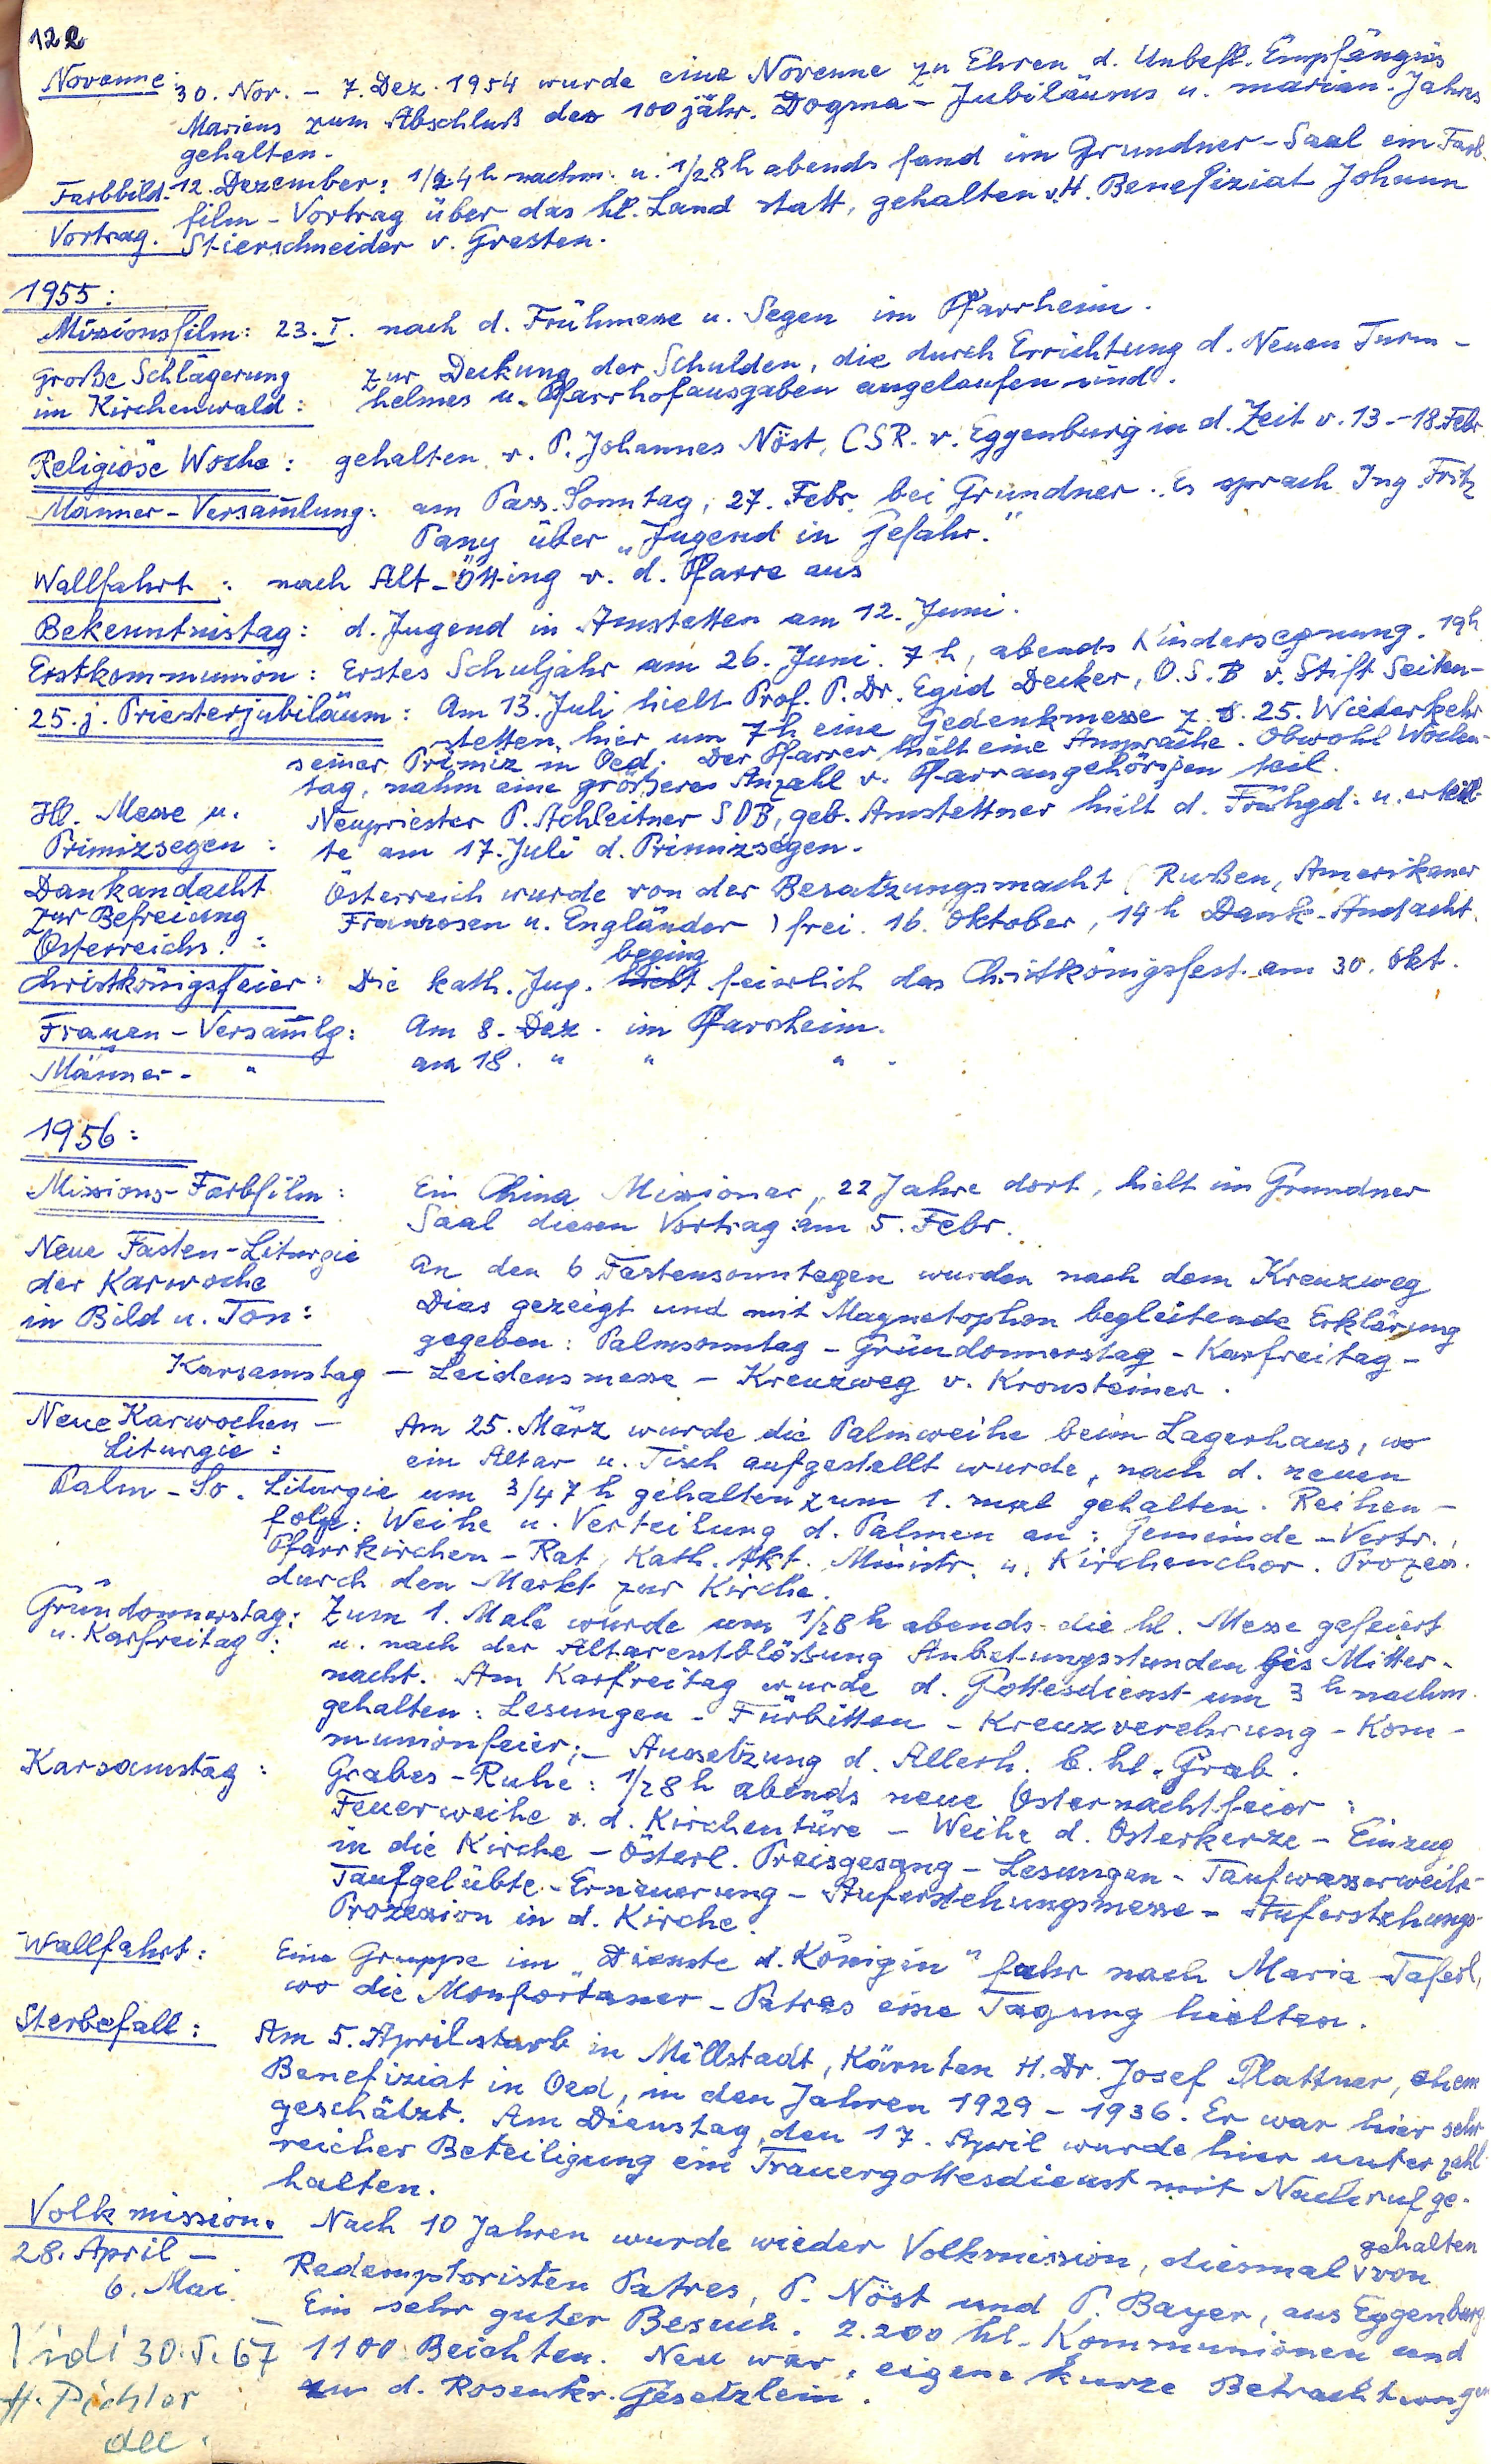 122
Novenne: 30. Nov. - 7. Dez. 1954 wurde eine Novenne zu Ehren d. Unbefl. Empfängnis
Mariens zum Abschluß des 100 jähr. Dogma - Jubiläums u. marian. Jahres
gehalten.
Farbbild- 12. Dezember: 1/2 4 h nachm. u. 1/2 8 h abends fand im Grundner-Saal ein Farb-
film - Vortrag über das hl. Land statt, gehalten v. H. Benefiziat Johann
Vortrag. Stierschneider v. Gresten.
1955:
Missionsfilm: 23. I. nach d. Frühmesse u. Segen im Pfarrheim.
Große Schlägerung zur Deckung der Schulden, die durch Errichtung d. Neuen Turm-
im Kirchenwald: helmes u. Pfarrhofausgaben angelaufen sind.
Religiöse Woche: gehalten v. P. Johannes Nöst, CSR. v. Eggenburg in d. Zeit v. 13.-18. Febr.
Männer-Versam̅lung: am Pass. Sonntag, 27. Febr. bei Grundner. Es sprach Ing. Fritz
Pany über „Jugend in Gefahr."
Wallfahrt: nach Alt-Ötting v. d. Pfarre aus
Bekenntnistag: d. Jugend in Amstetten am 12. Juni.
Erstkommunion: Erstes Schuljahr am 26. Juni. 7 h, abends Kindersegnung. 19h
25. j. Priesterjubiläum: Am 13. Juli hielt Prof. P. Dr. Egid Decker, O.S.B v. Stift Seiten-
stetten, hier um 7h eine Gedenkmesse z. 25. Wiederkehr
seiner Primiz in Oed. Der Pfarrer hielt eine Ansprache. Obwohl Wochen-
tag, nahm eine größere Anzahl v. Pfarrangehörigen teil.
Hl. Messe u. Neupriester P. Achleitner SDB, geb. Amstettner hielt d. Frühgd. u. erteil-
Primizsegen: te am 17. Juli d. Primizsegen.
Dankandacht Österreich wurde von der Besatzungsmacht (Rußen, Amerikaner
zur Befreiung Franzosen u. Engländer) frei. 16. Oktober, 14 h Dank-Andacht.
Österreichs.:
beging
Christkönigsfeier: Die kath. Jug. hielt feierlich das Christkönigsfest am 30. Okt.
Frauen-Versam̅lg: Am 8. Dez. im Pfarrheim.
Männer- " am 18. " " " .
1956:
Missions-Farbfilm: Ein China Missionar, 22 Jahre dort, hielt im Grundner
Saal diesen Vortrag am 5. Febr.
Neue Fasten-Liturgie An den 6 Fastensonntagen wurden nach dem Kreuzweg
der Karwoche Dias gezeigt und mit Magnetophon begleitende Erklärung
in Bild u. Ton: gegeben: Palmsonntag - Gründonnerstag - Karfreitag -
Karsamstag - Leidensmesse - Kreuzweg v. Kronsteiner.
Neue Karwochen- Am 25. März wurde die Palmweihe beim Lagerhaus, wo
Liturgie: ein Altar u. Tisch aufgestellt wurde, nach d. neuen
Palm-So. Liturgie um 3/4 7 h gehalten zum 1. mal gehalten. Reihen-
folge: Weihe u. Verteilung d. Palmen an: Gemeinde-Vertr.,
Pfarrkirchen-Rat, Kath. Akt. Ministr. u. Kirchenchor. Prozess.
durch den Markt zur Kirche.
Gründonnerstag: Zum 1. Male wurde um 1/2 8 h abends die hl. Messe gefeiert
u. Karfreitag: u. nach der Altarentblößung Anbetungsstunden bis Mitter-
nacht. Am Karfreitag wurde d. Gottesdienst um 3 h nachm.
gehalten: Lesungen - Fürbitten - Kreuzverehrung - Kom-
munionfeier; - Aussetzung d. Allerh. b. hl. Grab.
Karsamstag: Grabes-Ruhe: 1/2 8 h abends neue Osternachtfeier:
Feuerweihe v. d. Kirchentüre - Weihe d. Osterkerze - Einzug
in die Kirche - Österl. Preisgesang - Lesungen - Taufwasserweihe-
Taufgelübte-Erneuerung - Auferstehungsmesse - Auferstehungs-
Prozession in d. Kirche
Wallfahrt: Eine Gruppe im „Dienste d. Königin" fuhr nach Maria-Taferl,
wo die Monfortaner-Patres eine Tagung hielten.
Sterbefall: Am 5. April starb in Millstadt, Kärnten H. Dr. Josef Plattner, ehem
Benefiziat in Oed, in den Jahren 1929 - 1936. Er war hier sehr
geschätzt. Am Dienstag, den 17. April wurde hier unter zahl
reicher Beteiligung ein Trauergottesdienst mit Nachruf ge-
halten.
Volkmission. Nach 10 Jahren wurde wieder Volksmission, diesmal gehalten von
28. April - Redemptoristen Patres, P. Nöst und P. Bayer, aus Eggenburg
6. Mai. Ein sehr guter Besuch. 2.200 hl. Kommunionen und
1100 Beichten. Neu war, eigene kurze Betrachtungen
zu d. Rosenkr. Gesetzlein.
Vidi 30. V. 67
H. Pichler
dec.